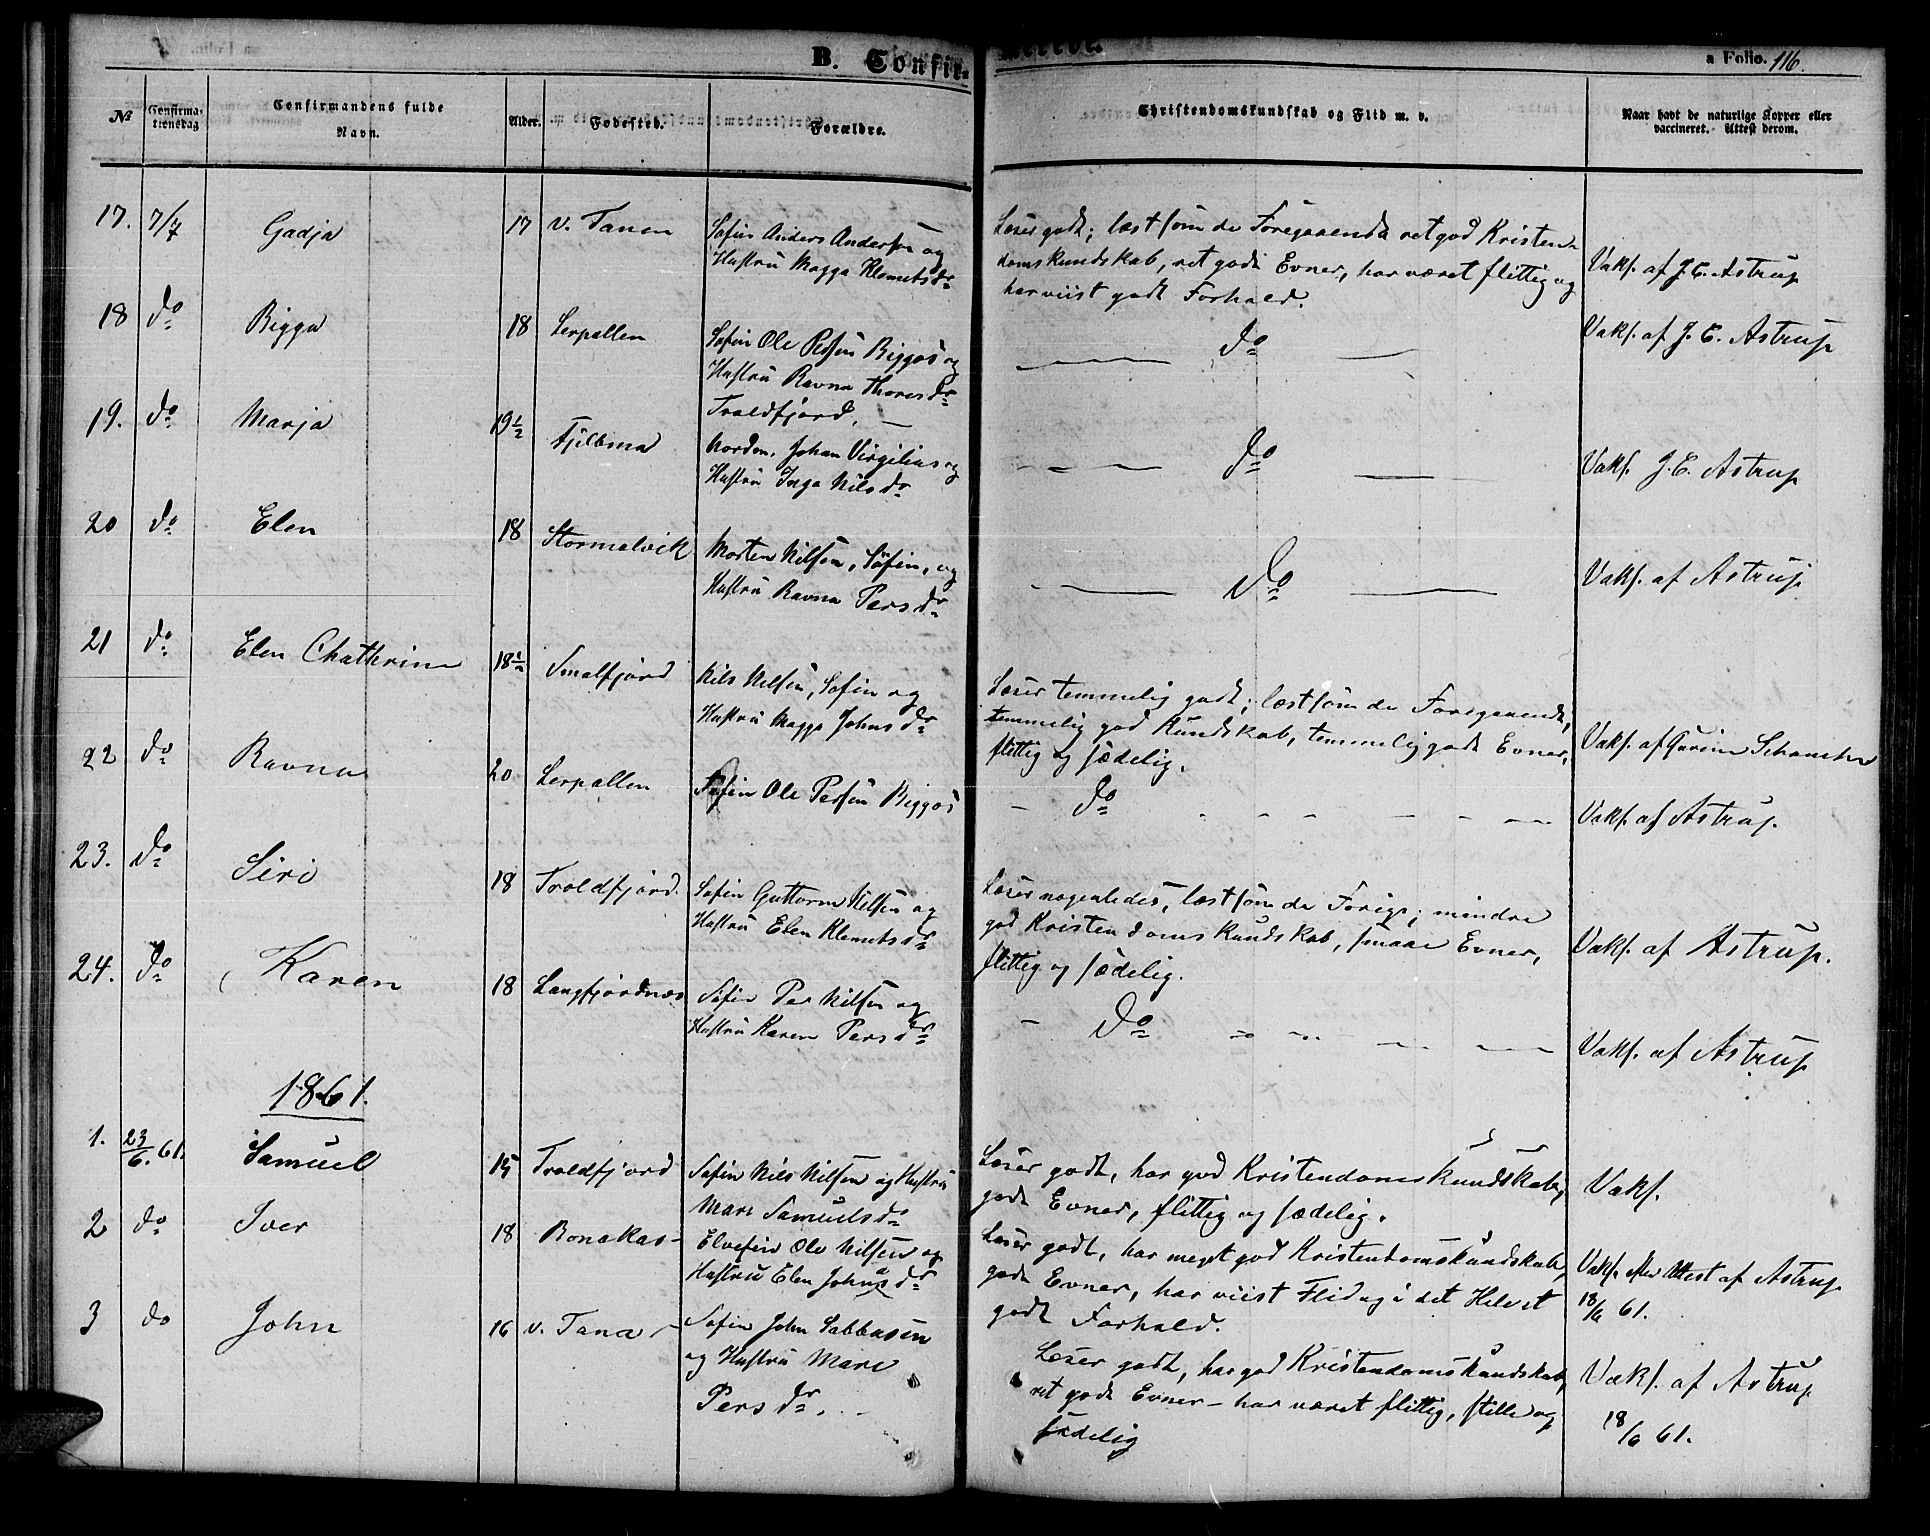 B. Confir-
a Folio. 116.
№ Confirma-tionsdag Confirmandens fulde Navn. Alder. Fødested. Forældre. Christendomskundskab og Flid m. v. Naar havt de naturlige Kopper eller vaccineret. Attest derom.
17. 7/7 Gadja 17 v. Tanen Søfin Anders Andersen og
Hustru Magga Klemetsdr
Læser godt; læst som de Foregaaende ret god Kristen-
domskundskab, ret gode Evner, har været flittig og
har viist godt Forhold.
Vakf. af J. C. Astrup
18 do Bigga 18 Lerpollen Søfin Ole Persen Biggos og
Hustru Ravna Thoresdr
Troldfjord. —
— do — Vakf. af J. C. Astrup
19. do Marja 19½ Fjelbma Nordm. Johan Virgilius og
Hustru Inga Nilsdr
— do — Vakf. J. C. Astrup
20 do Elen 18 Stormolvik Morten Nilsen, Søfin, og
Hustru Ravna Persdr
— do — Vakf. af Astrup
21 do Elen Chathrine 18½ Smalfjord Nils Nilsen, Søfin og
Hustru Magga Johnsdr
Læser temmelig godt; læst som de Foregaaende,
temmelig god Kundskab, temmelig gode Evner,
flittig og sædelig.
Vakf. af
22 do Ravna 20 Lerpollen Søfin Ole Persen Biggos
- do - Vakf. af Astrup.
23. do Siri 18 Troldfjord. Søfin Guttorm Nilsen og
Hustru Elen Klemetsdr
Læser nogenledes, læst som de Forige; mindre
god Kristendomskundskab, smaae Evner,
flittig og sædelig.
Vakf. af Astrup.
24. do Karen 18 Langfjordnæs Søfin Per Nilsen og
Hustru Karen Persdr
- do - Vakf. af Astrup
1861.
1. 23/6. 61. Samuel 15 Troldfjord Søfin Nils Nilsen og Hustru
Mare Samuelsdr
Læser godt, har god Kristendomskundskab,
gode Evner, flittig og sædelig.
Vakf.
2 do Iver 18 Bonakas- Elvefin Ole Nilsen og
Hustru Elen Johnsdr
Læser godt, har meget god Kristendomskundskab,
gode Evner, har viist Flid og i det Hele et
godt Forhold.
Vakf. efter Attest af Astrup
18/6 61.
3 do John 16 v. Tana - Søfin John Sabbasen
og Hustru Mare
Persdr. -
Læser godt, har god Kristendomskundskab,
ret gode Evner - har været flittig, stille og
sædelig
Vakf. af Astrup
18/6 61.